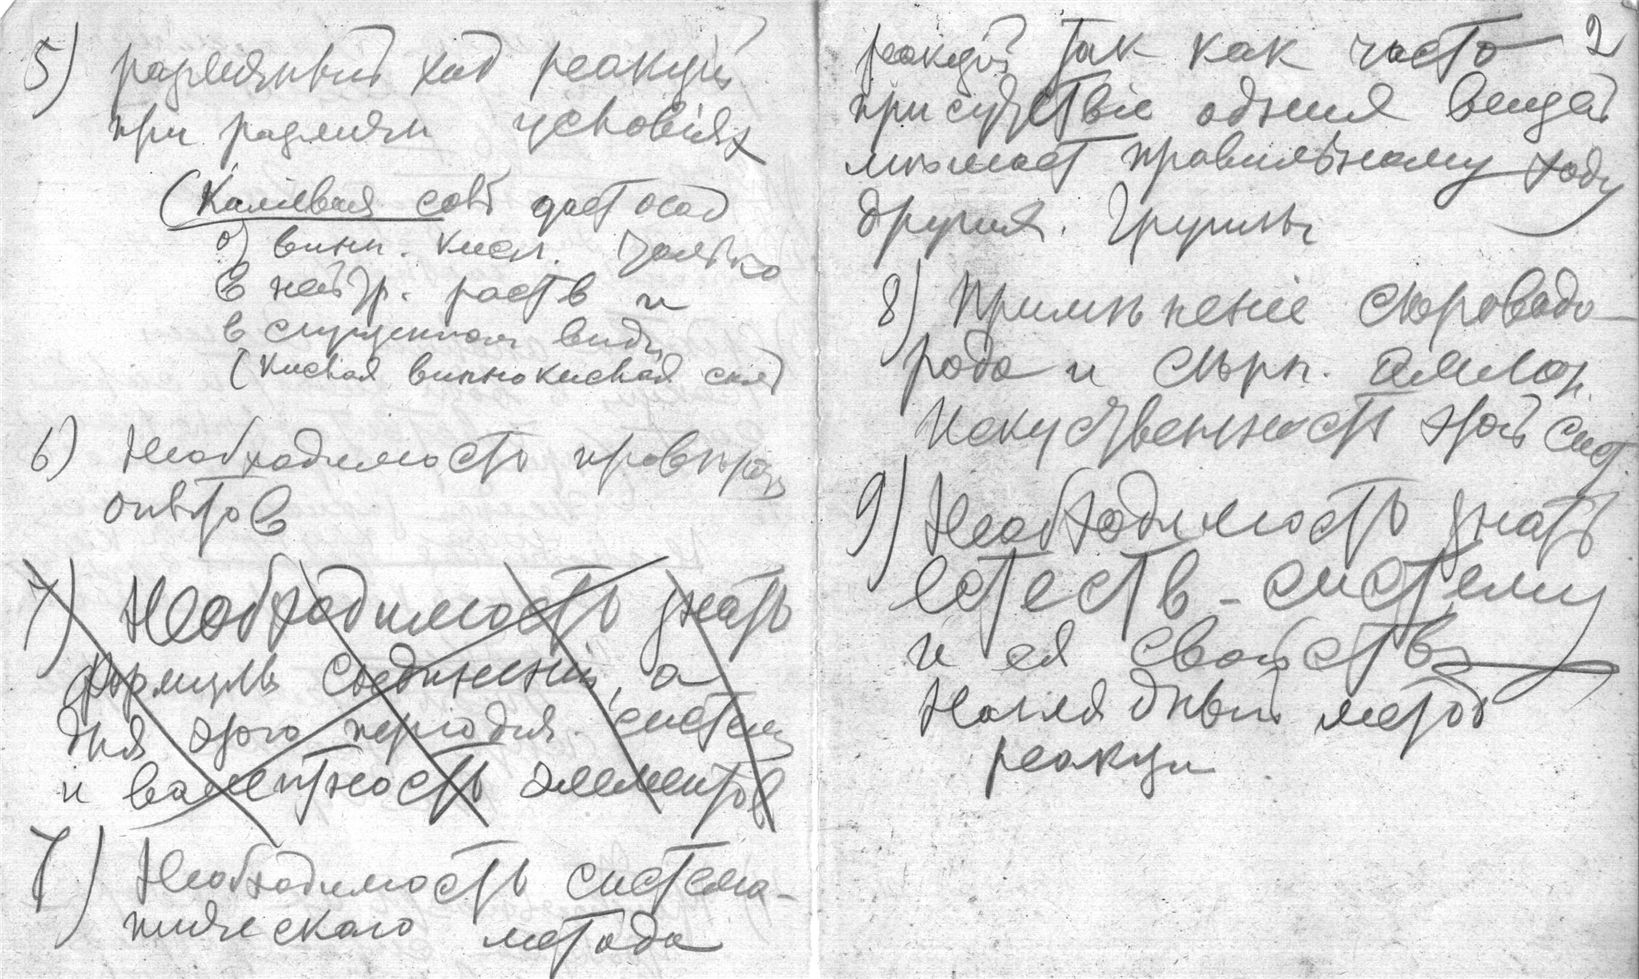 5) различный ход реакций
при различн условіях
(Каліевая соль даетъ осад
о) винн. кисл. только
в нейтр. раств и
в сгущенном виде
(кислая виннокислая соль)
6) Необходимость провѣрочн
опытов
7) Необходимость знать
формулы соединеній, а
для этого періодич. систему
и валентность элементов
7) Необходимость система-
тическаго метода
2
реакцій так как часто
присутствіе одних вещей
мѣшает правильному ходу
других. Группы
8) Примѣненіе сѣроводо-
рода и сѣрн. аммон.
Искуственность этой сист.
9) Необходимость знать
естеств. систему
и ея свойства
Наглядный метод
реакци